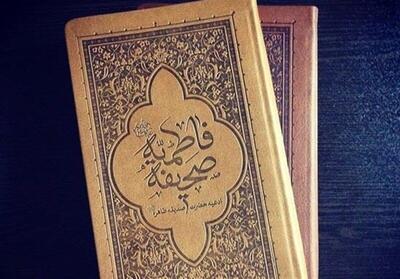 صحیفهٔ
فاطمیّه
ادعیه حضرت صدیقه طاهره